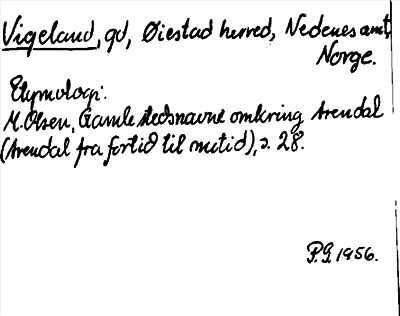 Vigeland, gd, Øiestad herred, Nedenes amt,
Norge.
Etymologi:
M. Olsen, Gamle stedsnavne omkring Arendal
(Arendal fra fortid til nutid), s. 28.
P.G. 1956.